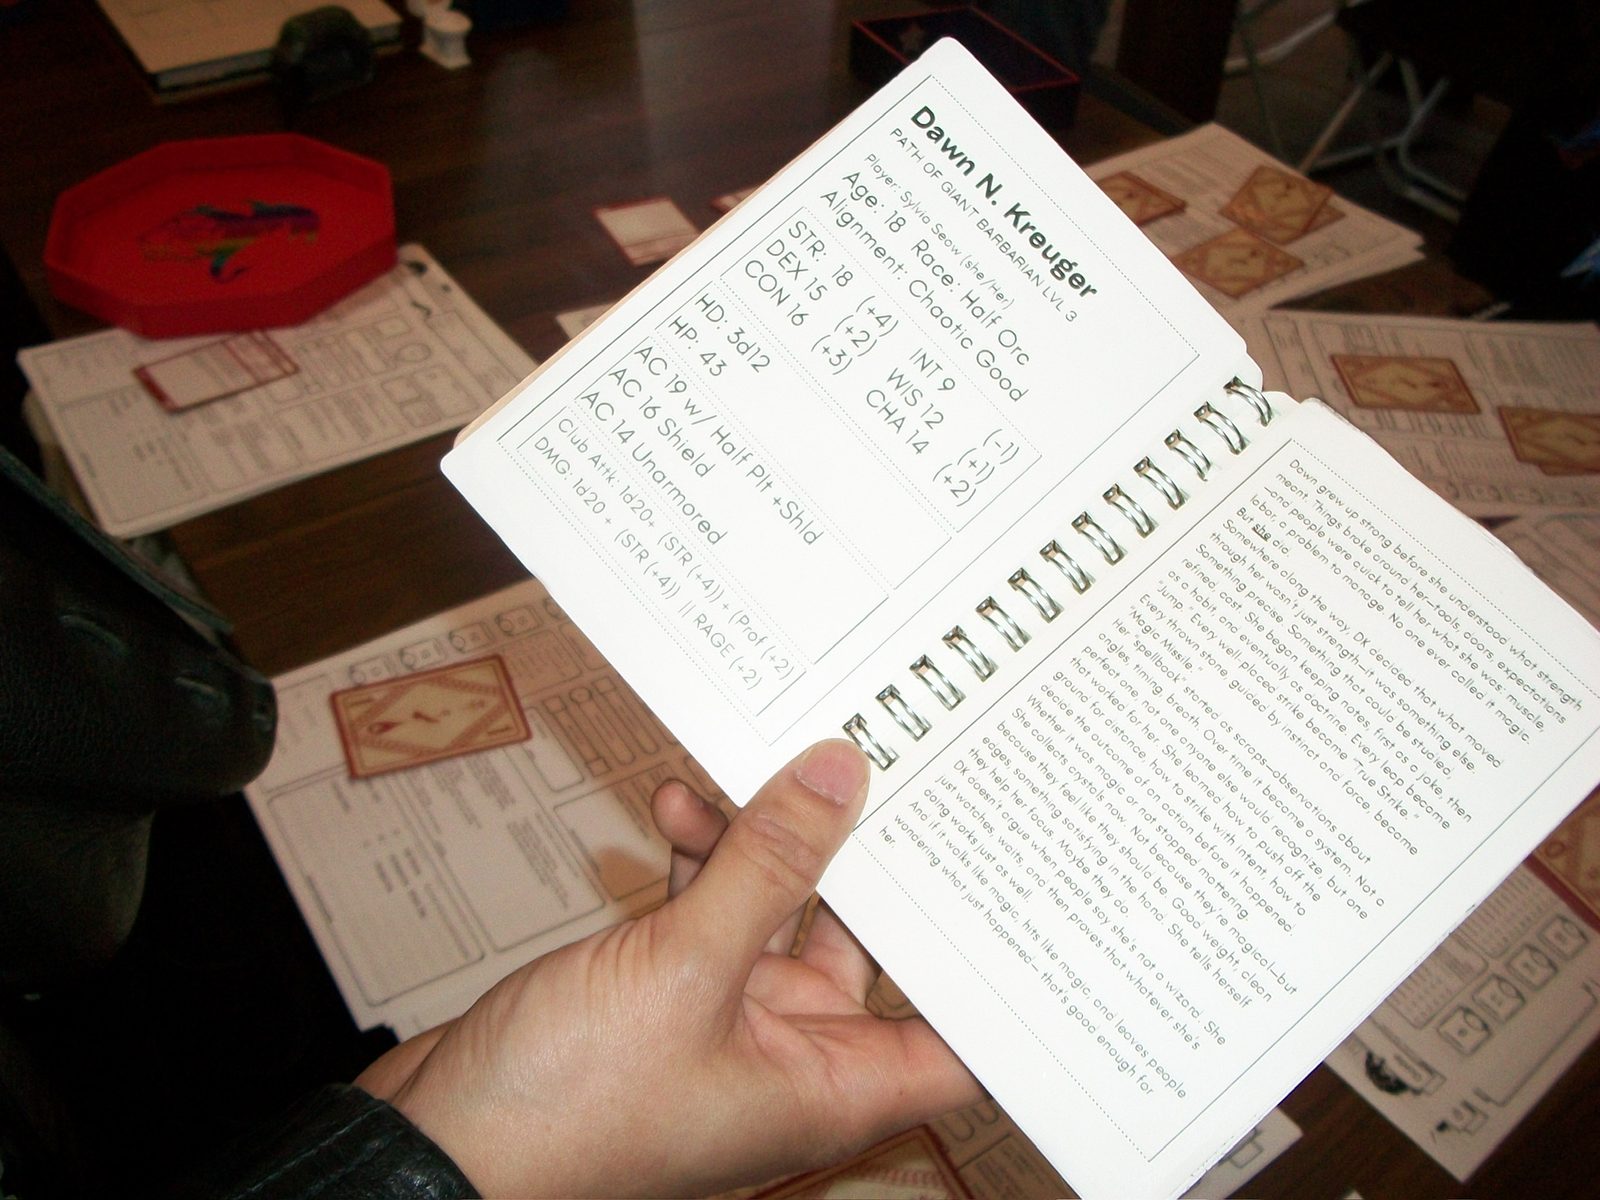 Dawn N. Kreuger
PATH OF GIANT BARBARIAN LVL 3
Player: Sylvia Seow (she/Her)
Age: 18 Race: Half Orc
Alignment: Chaotic Good
STR: 18 (+4) INT 9 (-1)
DEX 15 (+2) WIS 12 (+1)
CON 16 (+3) CHA 14 (+2)
HD: 3d12
HP: 43
AC 19 w/ Half Plt +Shld
AC 16 Shield
AC 14 Unarmored
Club Attk: 1d20+ (STR (+4)) + (Prof (+2)
DMG: 1d20 + (STR (+4)) || RAGE (+2)
Dawn grew up strong before she understood what strength
meant. Things broke around her—tools, doors, expectations
—and people were quick to tell her what she was: muscle,
labor, a problem to manage. No one ever called it magic.
But she did.
Somewhere along the way, DK decided that what moved
through her wasn't just strength—it was something else.
Something precise. Something that could be studied,
refined, cast. She began keeping notes, first as a joke, then
as a habit, and eventually as doctrine. Every leap became
"Jump." Every well-placed strike became "True Strike."
Every thrown stone, guided by instinct and force, became
"Magic Missile."
Her "spellbook" started as scraps—observations about
angles, timing, breath. Over time it became a system. Not a
perfect one, not one anyone else would recognize, but one
that worked for her. She learned how to push off the
ground for distance, how to strike with intent, how to
decide the outcome of an action before it happened.
Whether it was magic or not stopped mattering.
She collects crystals now. Not because they're magical—but
because they feel like they should be. Good weight, clean
edges, something satisfying in the hand. She tells herself
they help her focus. Maybe they do.
DK doesn't argue when people say she's not a wizard. She
just watches, waits, and then proves that whatever she's
doing works just as well.
And if it walks like magic, hits like magic, and leaves people
wondering what just happened— that's good enough for
her.